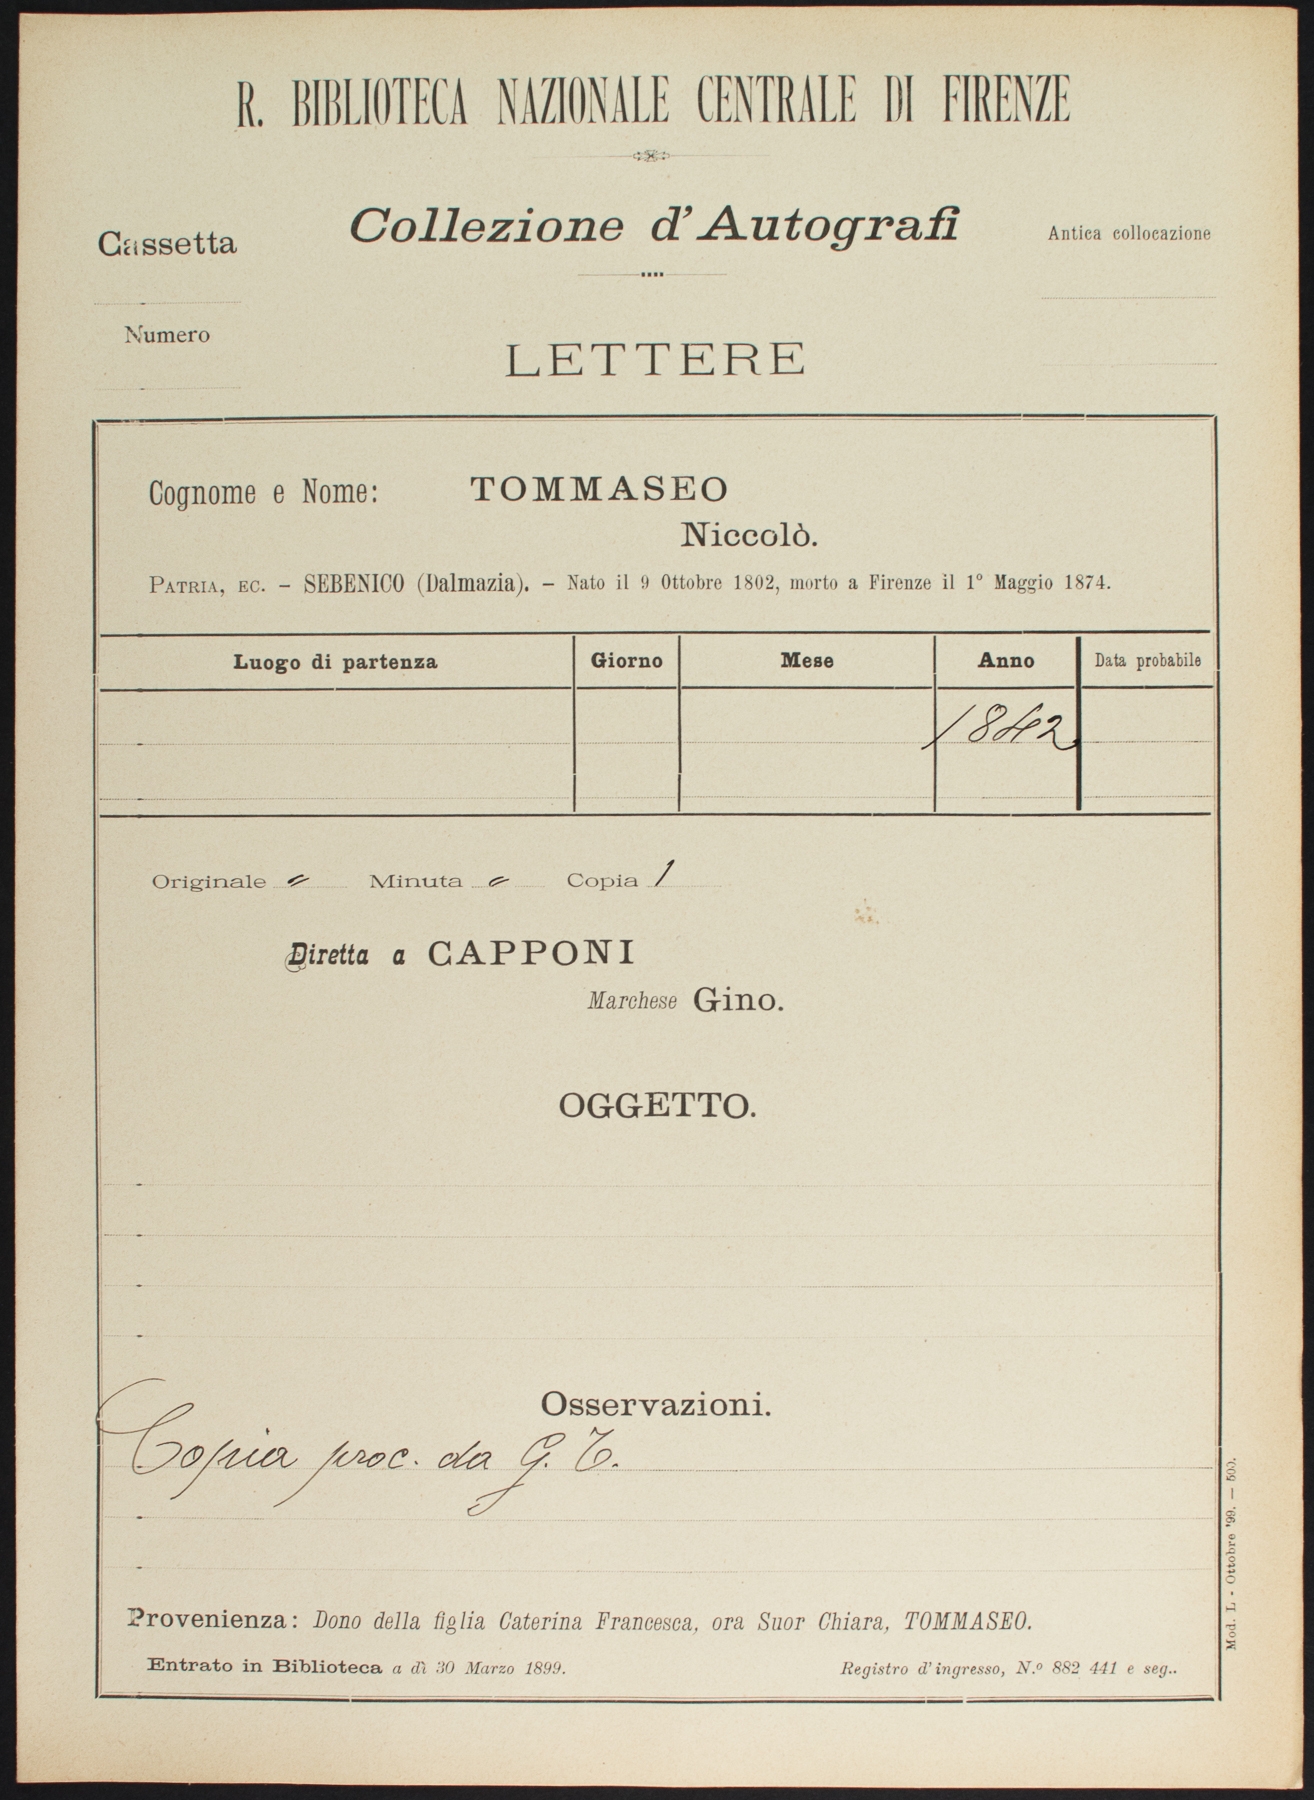 R. BIBLIOTECA NAZIONALE CENTRALE DI FIRENZE
Cassetta
Collezione d'Autografi
Antica collocazione
Numero
LETTERE
Cognome e Nome: TOMMASEO
Niccolò.
PATRIA, EC. - SEBENICO (Dalmazia). - Nato il 9 Ottobre 1802, morto a Firenze il 1º Maggio 1874.
Luogo di partenza Giorno Mese Anno Data probabile
1842
Originale " Minuta " Copia 1
Diretta a CAPPONI
Marchese Gino.
OGGETTO.
Osservazioni.
Copia proc. da G. T.
Provenienza: Dono della figlia Caterina Francesca, ora Suor Chiara, TOMMASEO.
Entrato in Biblioteca a dì 30 Marzo 1899. Registro d'ingresso, N.º 882 441 e seg..
Mod. L - Ottobre '99. — 500.